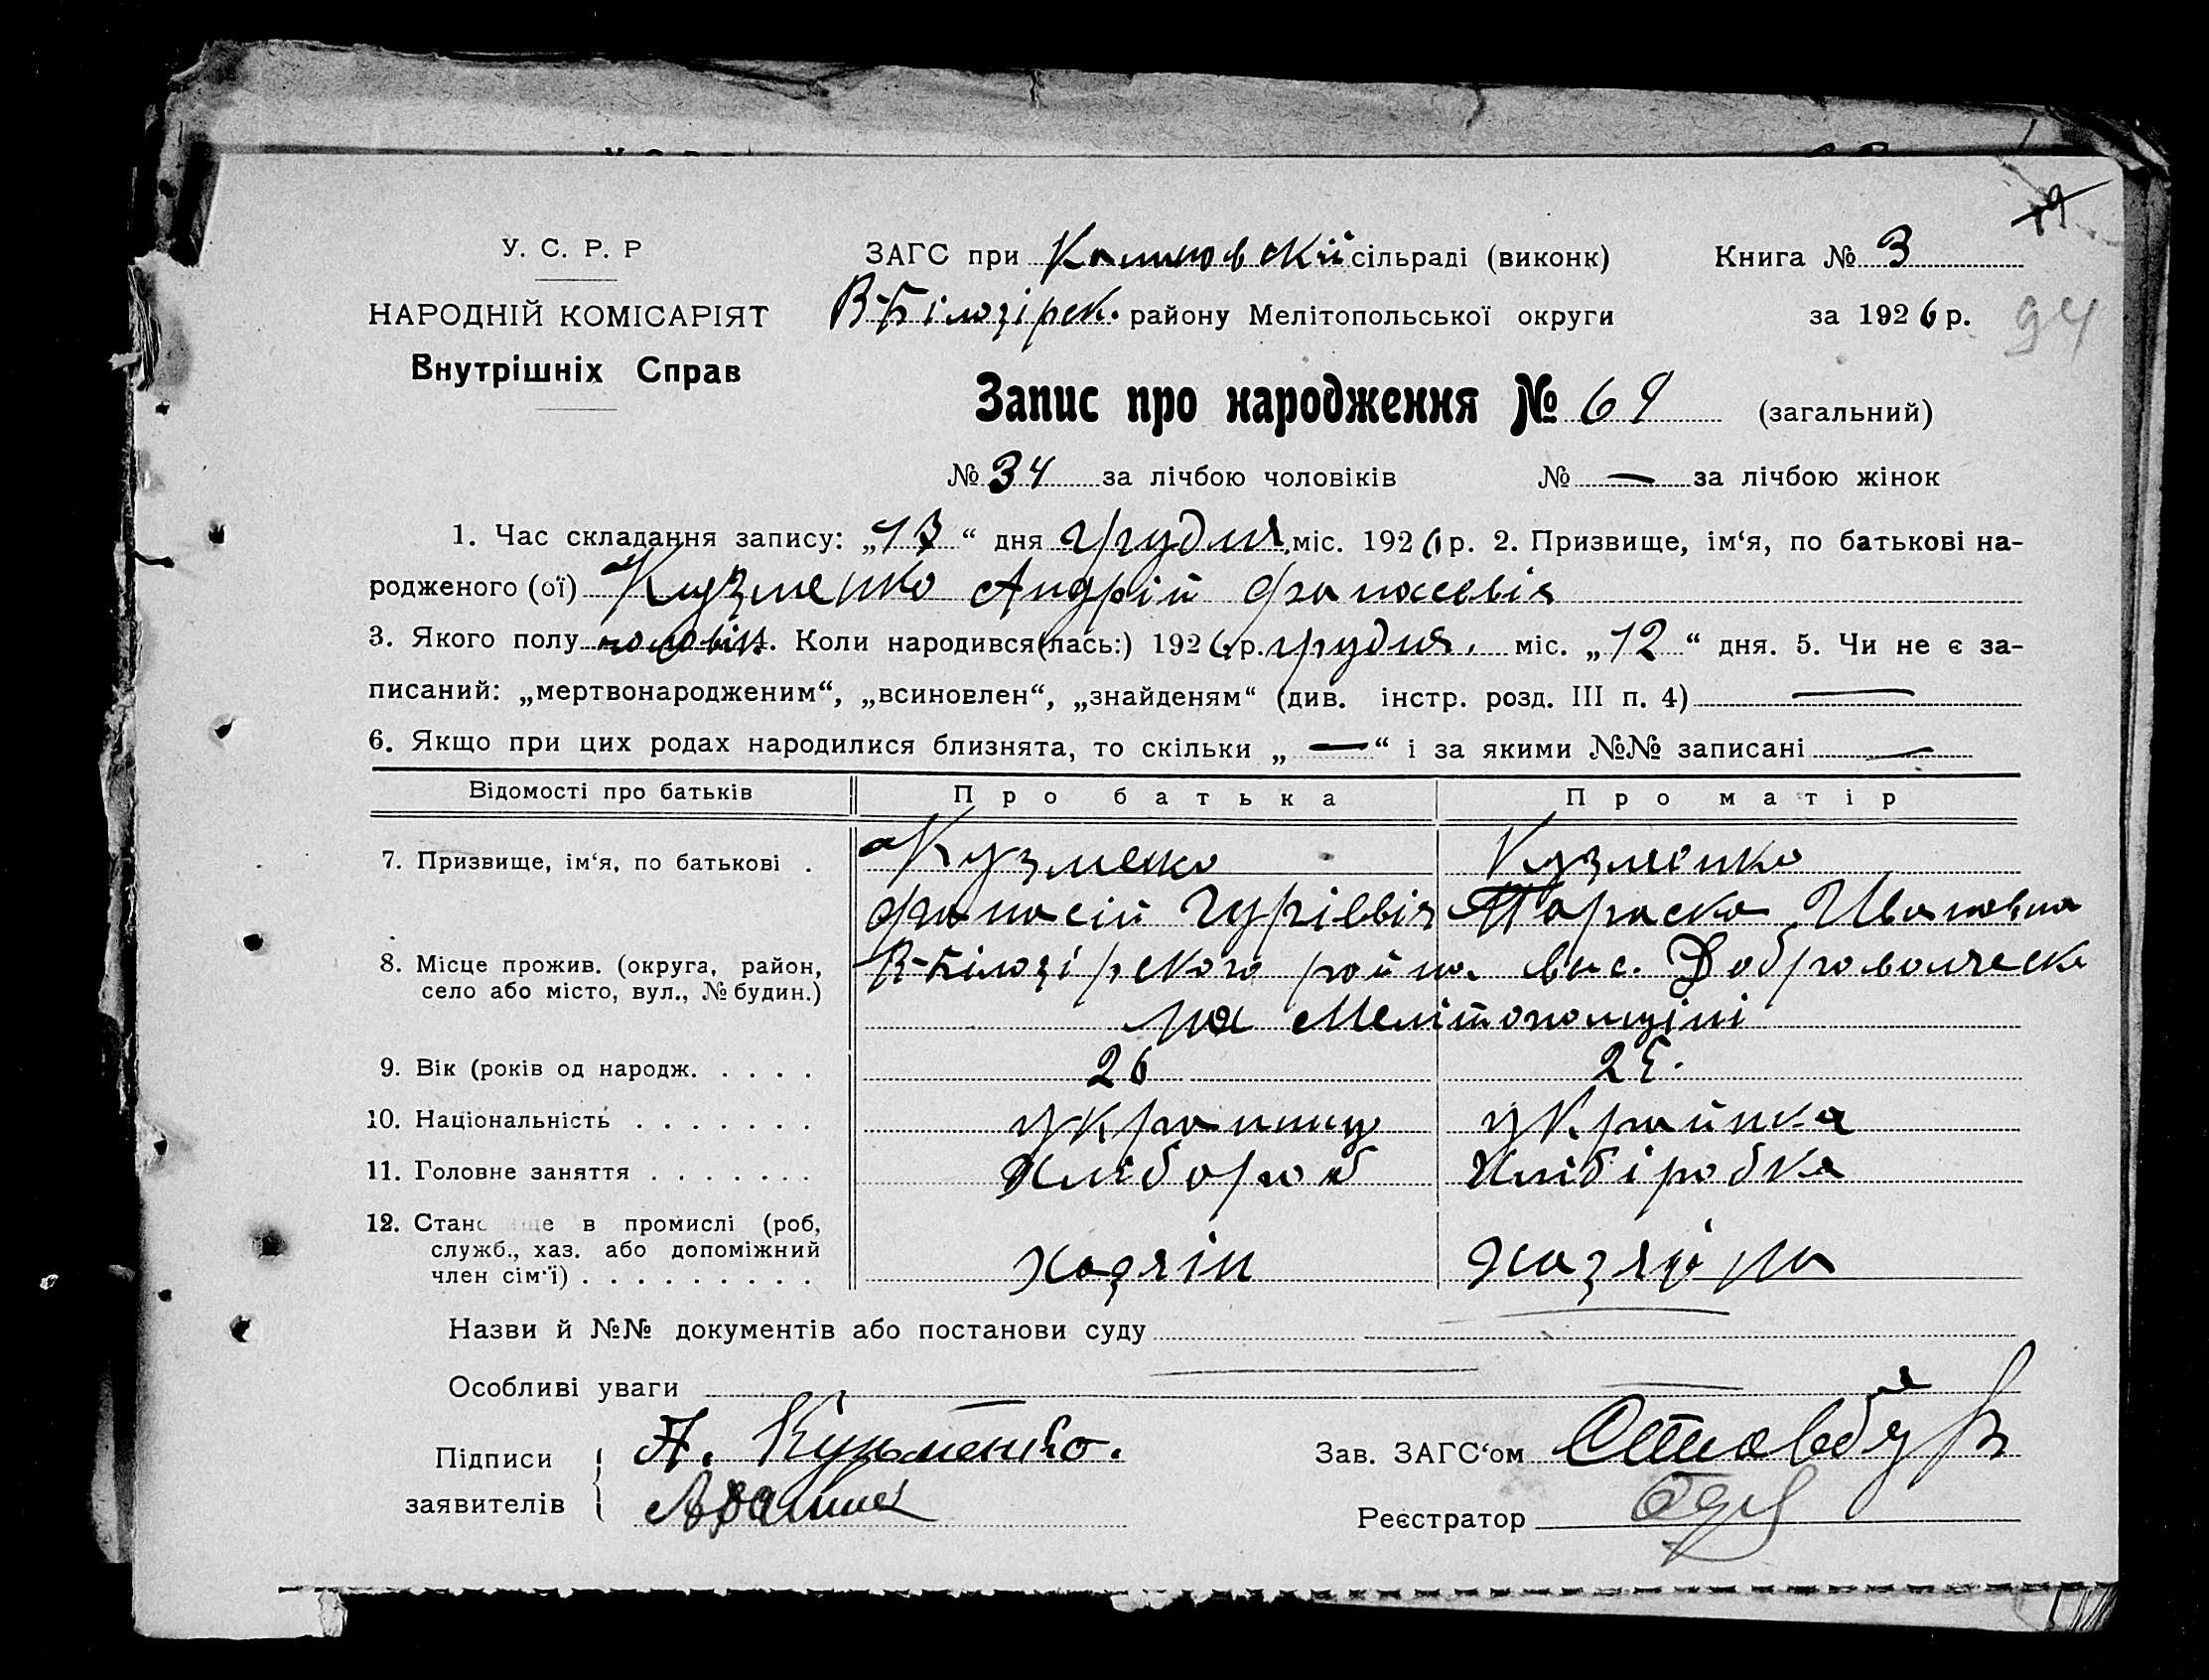 У. С. Р. Р
НАРОДНІЙ КОМІСАРІЯТ
Внутрішніх Справ
ЗАГС при сільраді (виконк) Книга № 3
В-Білозірск. району Мелітопольської округи за 1926 р. 94
Запис про народження № 69 (загальний)
№ 34 за лічбою чоловіків № — за лічбою жінок
1. Час складання запису: „13“ дня грудня міс. 1926 р. 2. Призвище, ім‘я, по батькові на-
родженого (ої) Кузменко Андрій
3. Якого полу чоловіч. Коли народився(лась:) 1926 р. грудня. міс. „12“ дня. 5. Чи не є за-
писаний: „мертвонародженим“, „всиновлен“, „знайденям“ (див. інстр. розд. III п. 4) —
6. Якщо при цих родах народилися близнята, то скільки „ — “ і за якими №№ записані —
Відомості про батьків Про батька Про матір
7. Призвище, ім‘я, по батькові . Кузменко Кузменко
Гурієвич Параска Ивановна
8. Місце прожив. (округа, район, В-Білозірского район. вис.
село або місто, вул., № будин.)
на Мелітопольщіні
9. Вік (років од народж. . . . . 26 25.
10. Національність . . . . . . . українец українка
11. Головне заняття . . . . . . . Хлібороб Хлібіробка
12. Стан в промислі (роб,
служб., хаз. або допоміжний
член сім‘ї) . . . . . . . . . Хазяін Хазяйна
Назви й №№ документів або постанови суду
Особливі уваги
Підписи А. Кузьменко. Зав. ЗАГС‘ом
заявителів
Реєстратор